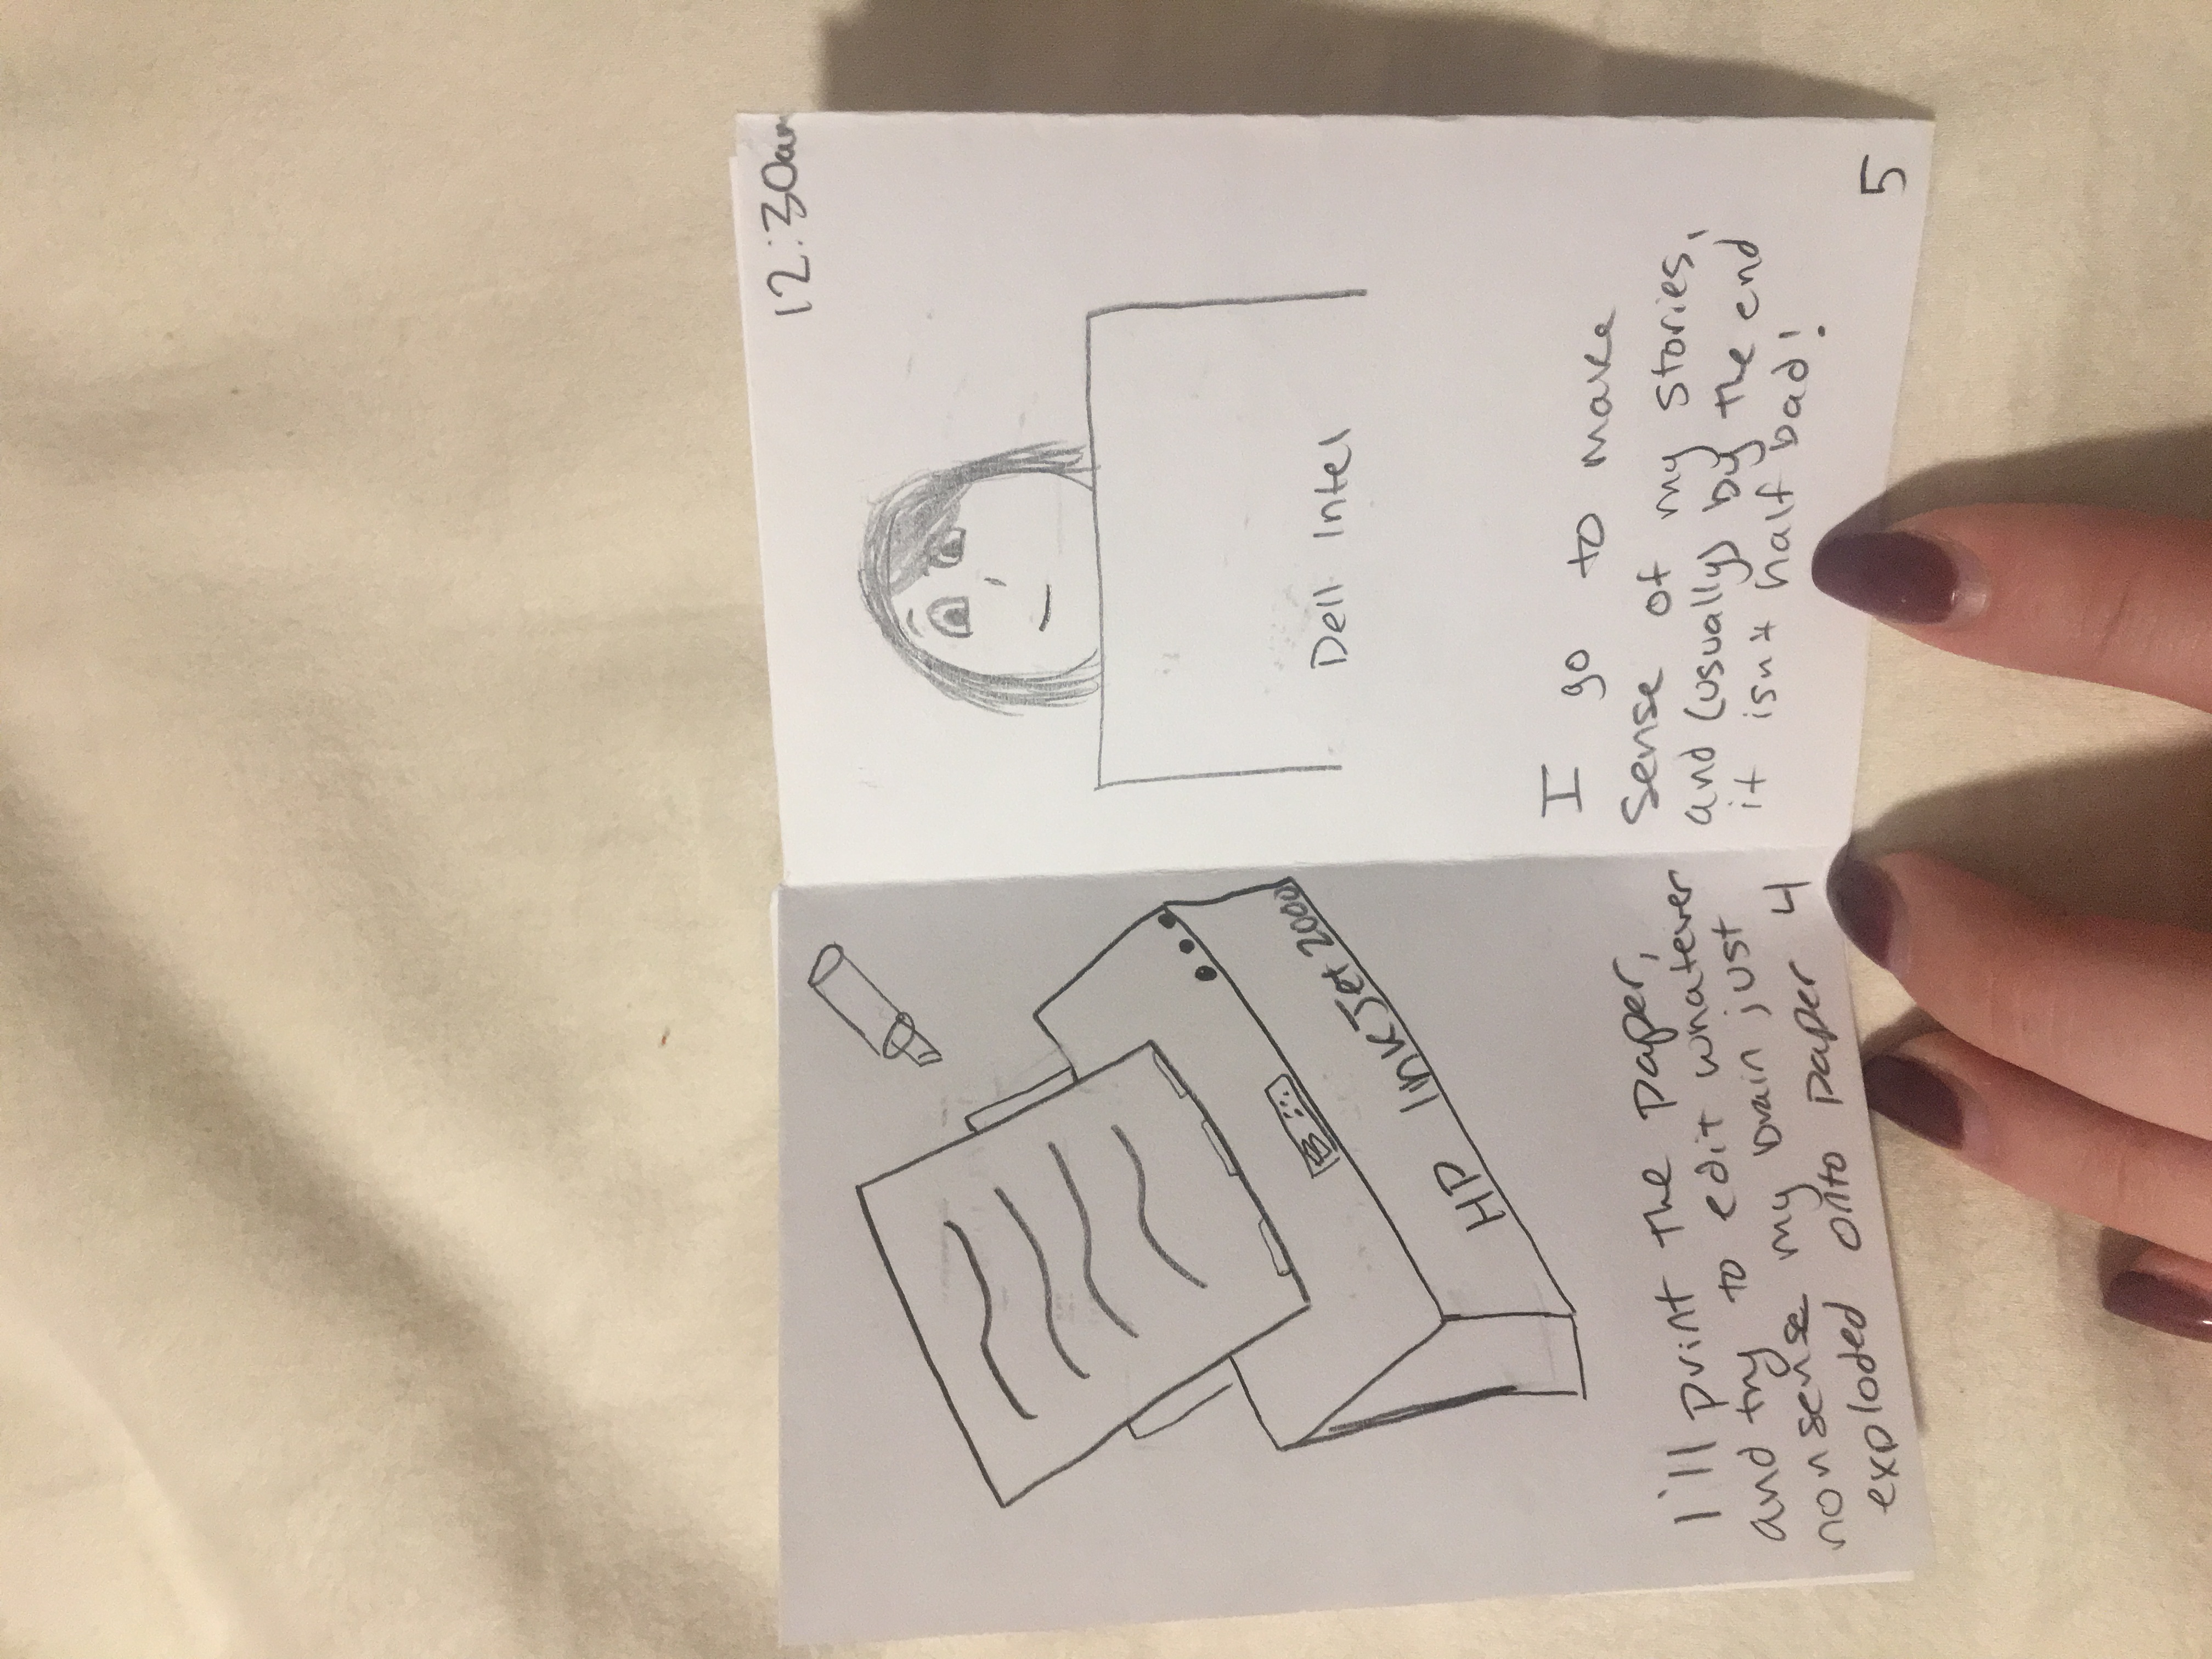 HP InkJet 2000
I'll print the paper,
and try to edit whatever
nonsense my brain just
exploded onto paper
4
12:30am
Dell Intel
I go to make
sense of my stories,
and (usually) by the end
it isnt half bad!
5